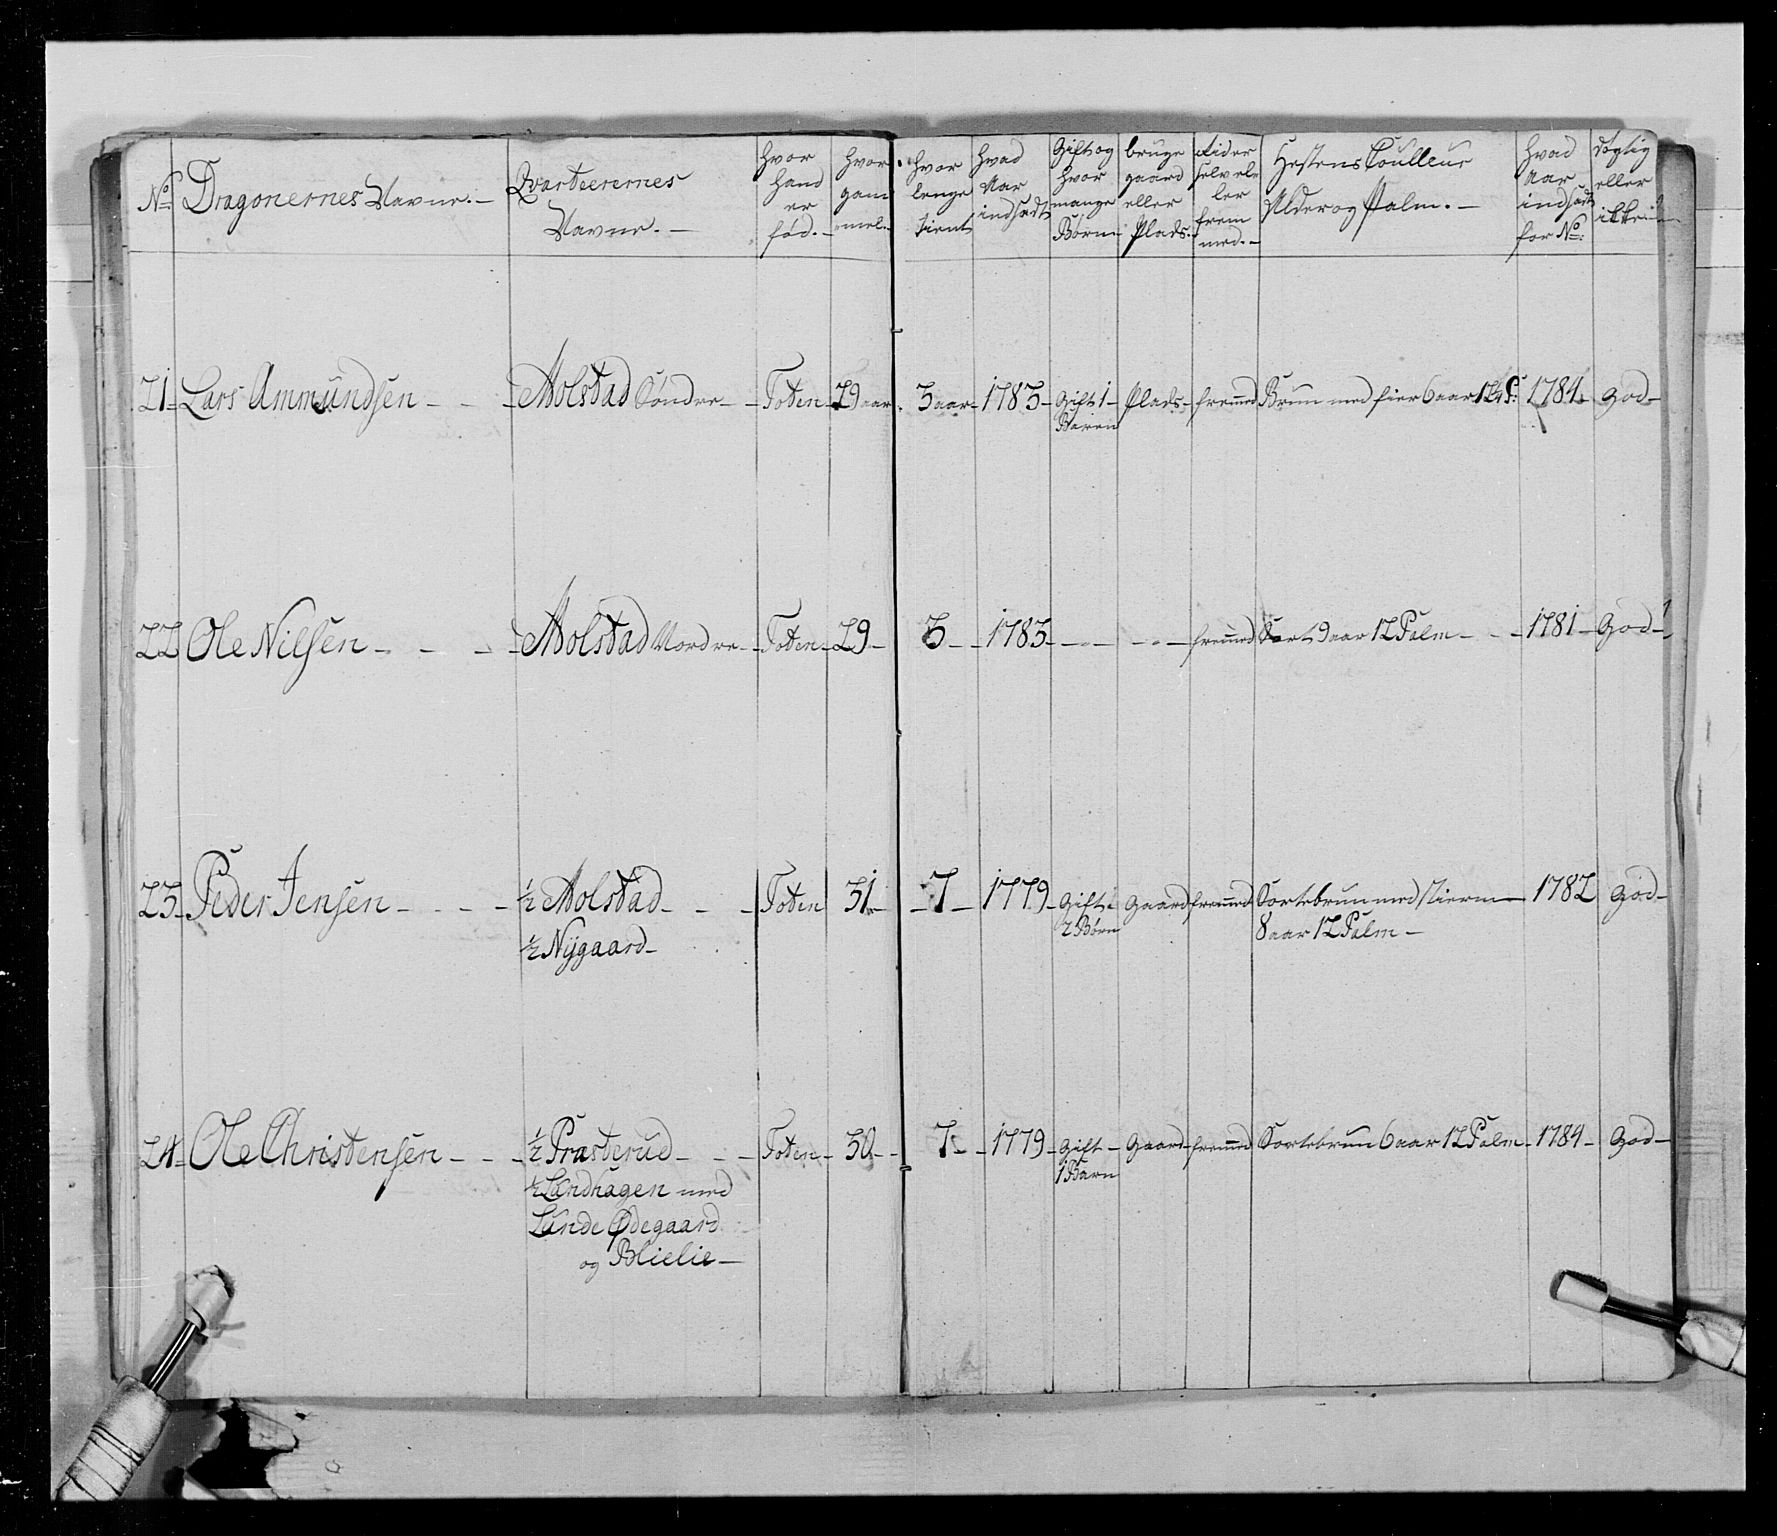 No: Dragonernes Navne. — Qvarteerernes Navne. — hvor hand er fød. — hvor gam mel. — hvor lenge tient hvad Aar indsadt Gift og hvor mange Børn bruge gaard eller Plads. Rider selv el- ler frem med. — Hestens Coulleur Alder og Palm. — hvad Aar indsadt for No: dygtig eller ikke
21 — Lars Ammundsen — — Alolstad Søndre — Toten — 29 aar. 3 aar — 1783 — Gift 1 — Plads — fremmed Brun med fier 6 aar 12½ P: 1784. God —
Baren
22 Ole Nilsen — — — Alolstad Nordre — Toten — 29 — 3 — 1783 — — — fremmed Sort 9 aar 12 Palm — — 1781 — God —
23 — Peder Jensen — — — — ½ Alolstad — — — Toten 31 — 7 — 1779 — Gift — Gaard fremmed Sortebrun med Stierne — 1782 God —
½ Nÿgaard — 2 Børn 8 aar 12 Palm —
24 — Ole Christensen — — — ½ Prasterud — — — Toten — 30 — — 7 — — 1779 — Gift — Gaard — fremmed Sortebrun 6 aar 12 Palm — 1784 — God —
½ Landhagen med 1 Barn
Lunde Ødegaard
og Blielie —